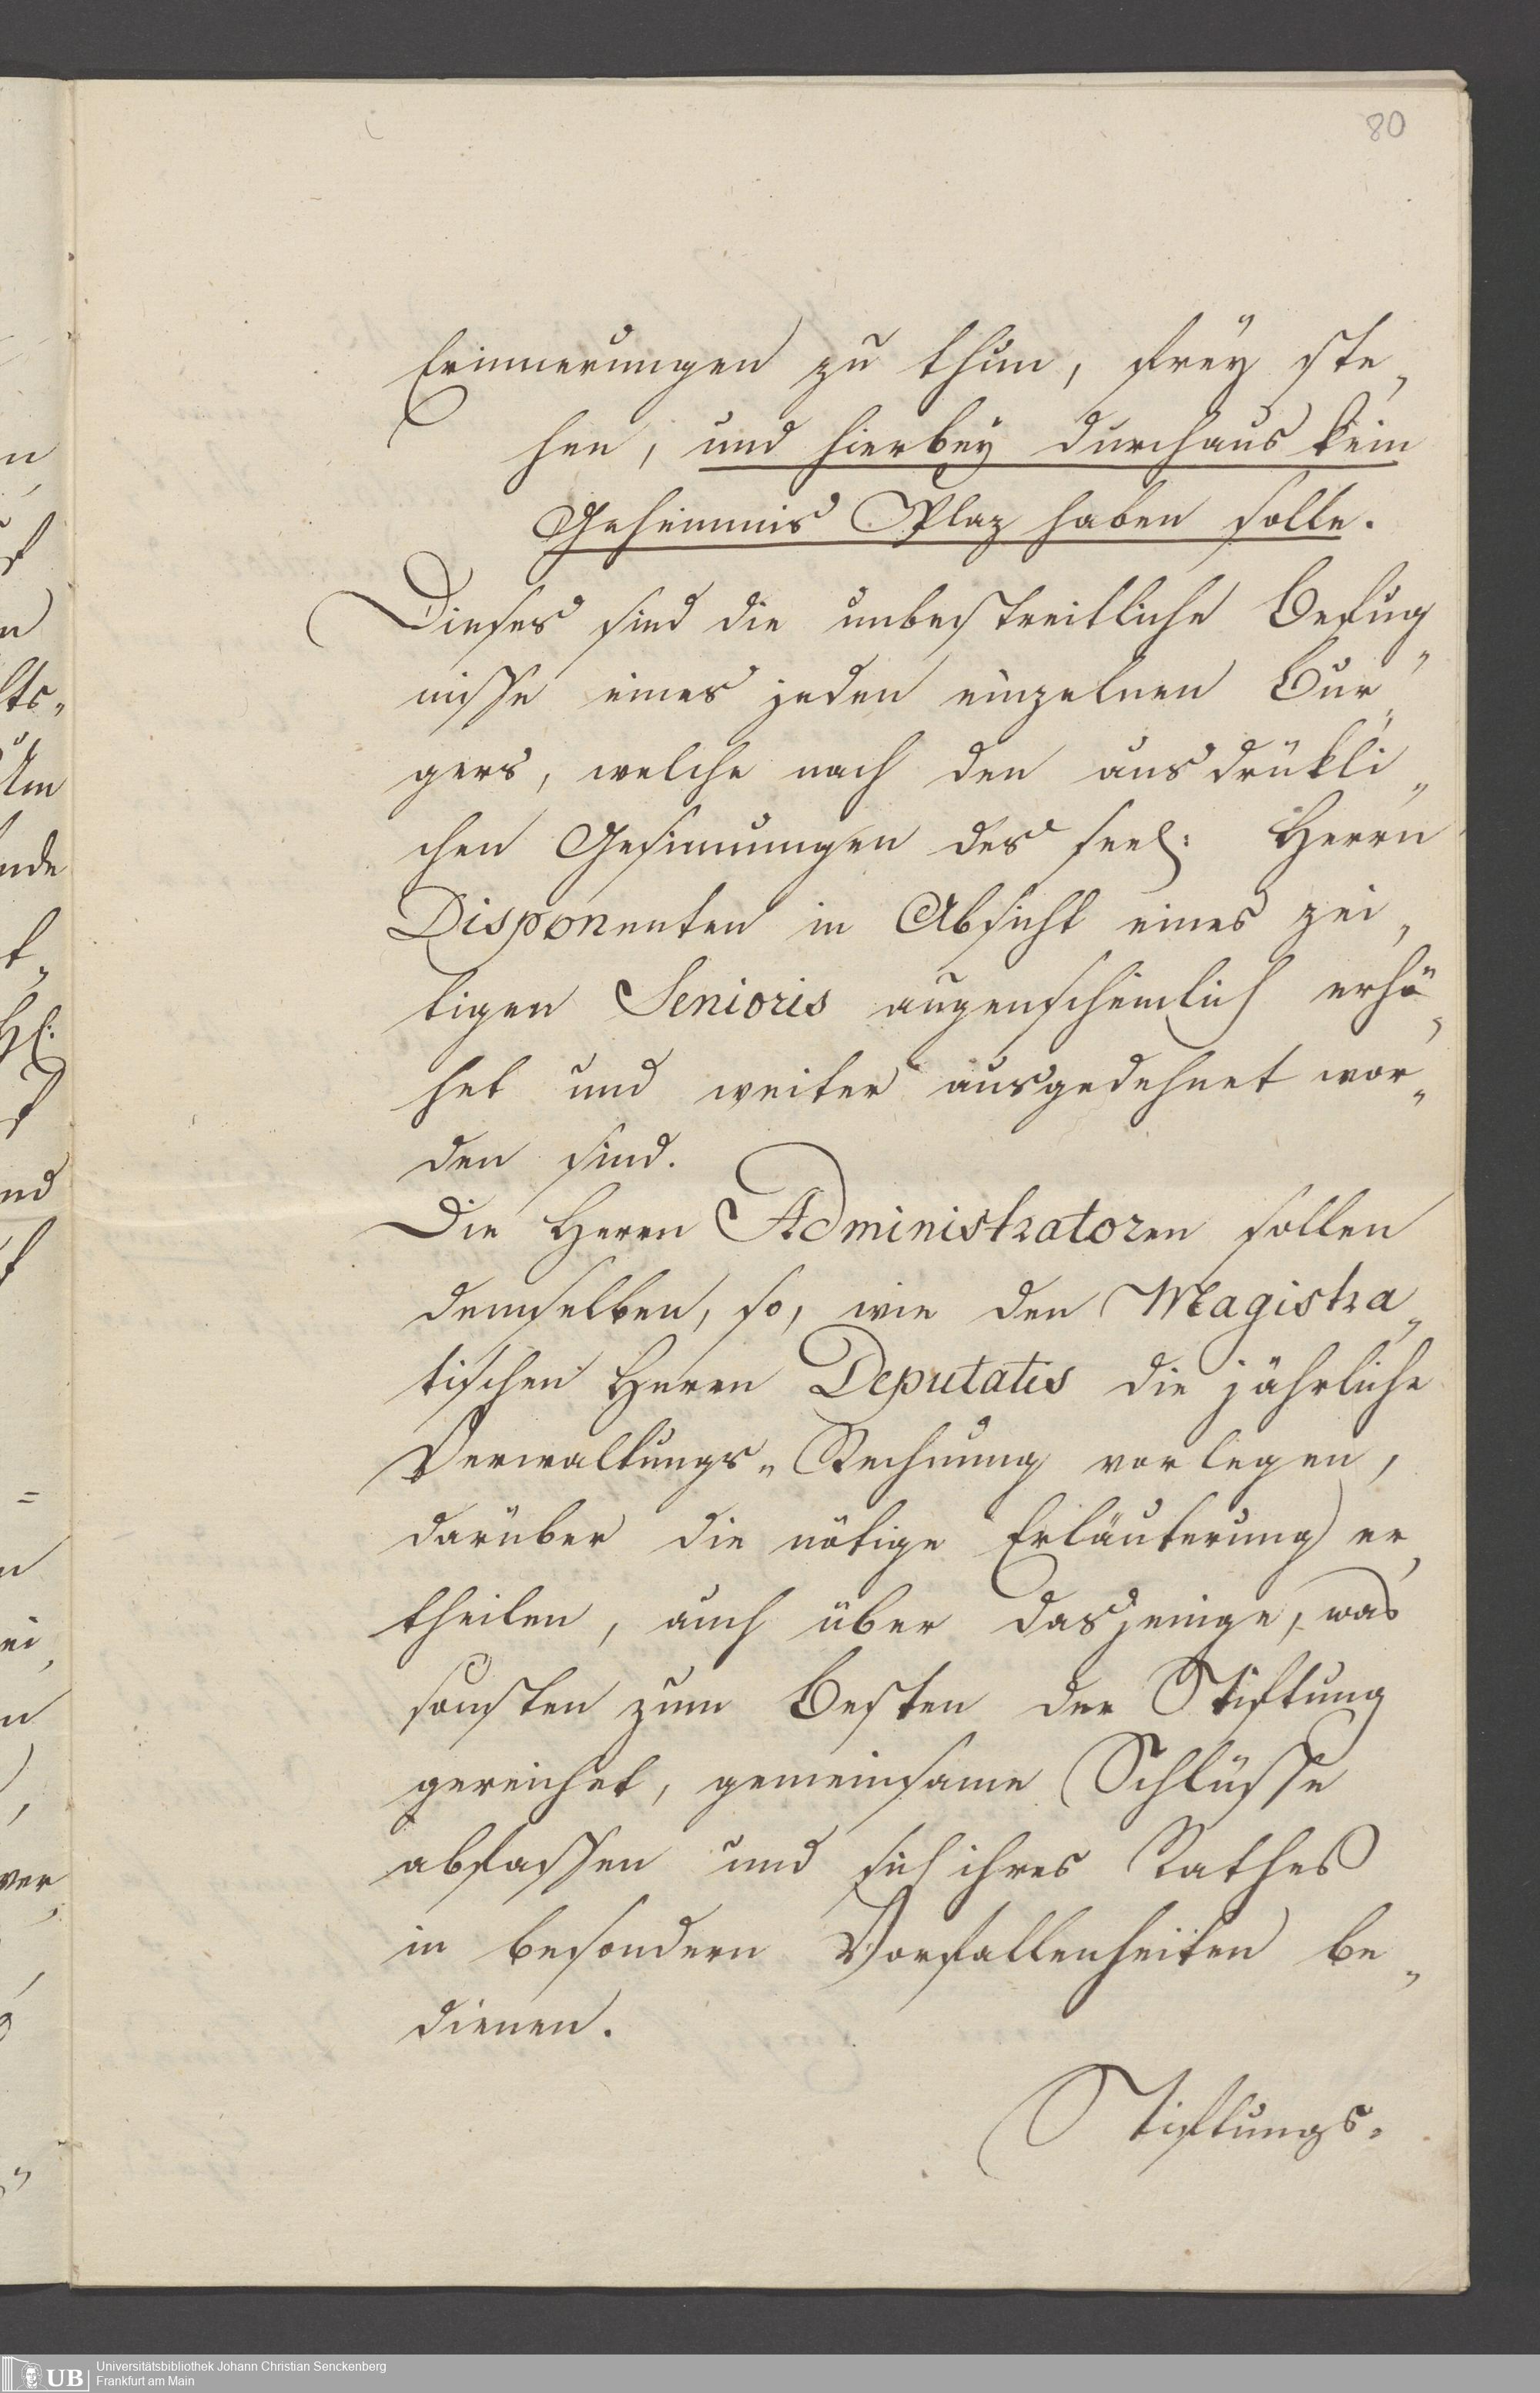 80
Erinnerungen zu thun, freÿ ste„
hen, und hierbeÿ durchaus kein
Geheimnis Plaz haben solle.
Dieses sind die unbestreitliche Befug„
nisse eines jeden einzelnen Bür„
gers, welche nach den ausdrükli„
chen Gesinnungen des seel: Herrn
Disponenten in Absicht eines zei„
tigen Senioris augenscheinlich erhö„
het und weiter ausgedehnet wor„
den sind.
Die Herrn Administratoren sollen
demselben, so, wie den Magistra„
tischen Herrn Deputatis die jährliche
Verwaltungs„Rechnung vorlegen,
darüber die nötige Erläuterung er„
theilen, auch über dasjenige, was
sonsten zum Besten der Stiftung
gereichet, gemeinsame Schlüsse
abfassen und sich ihres Rathes
in besondern Vorfallenheiten be„
dienen.
Stiftungs=
UB
Universitätsbibliothek Johann Christian Senckenberg
Frankfurt am Main